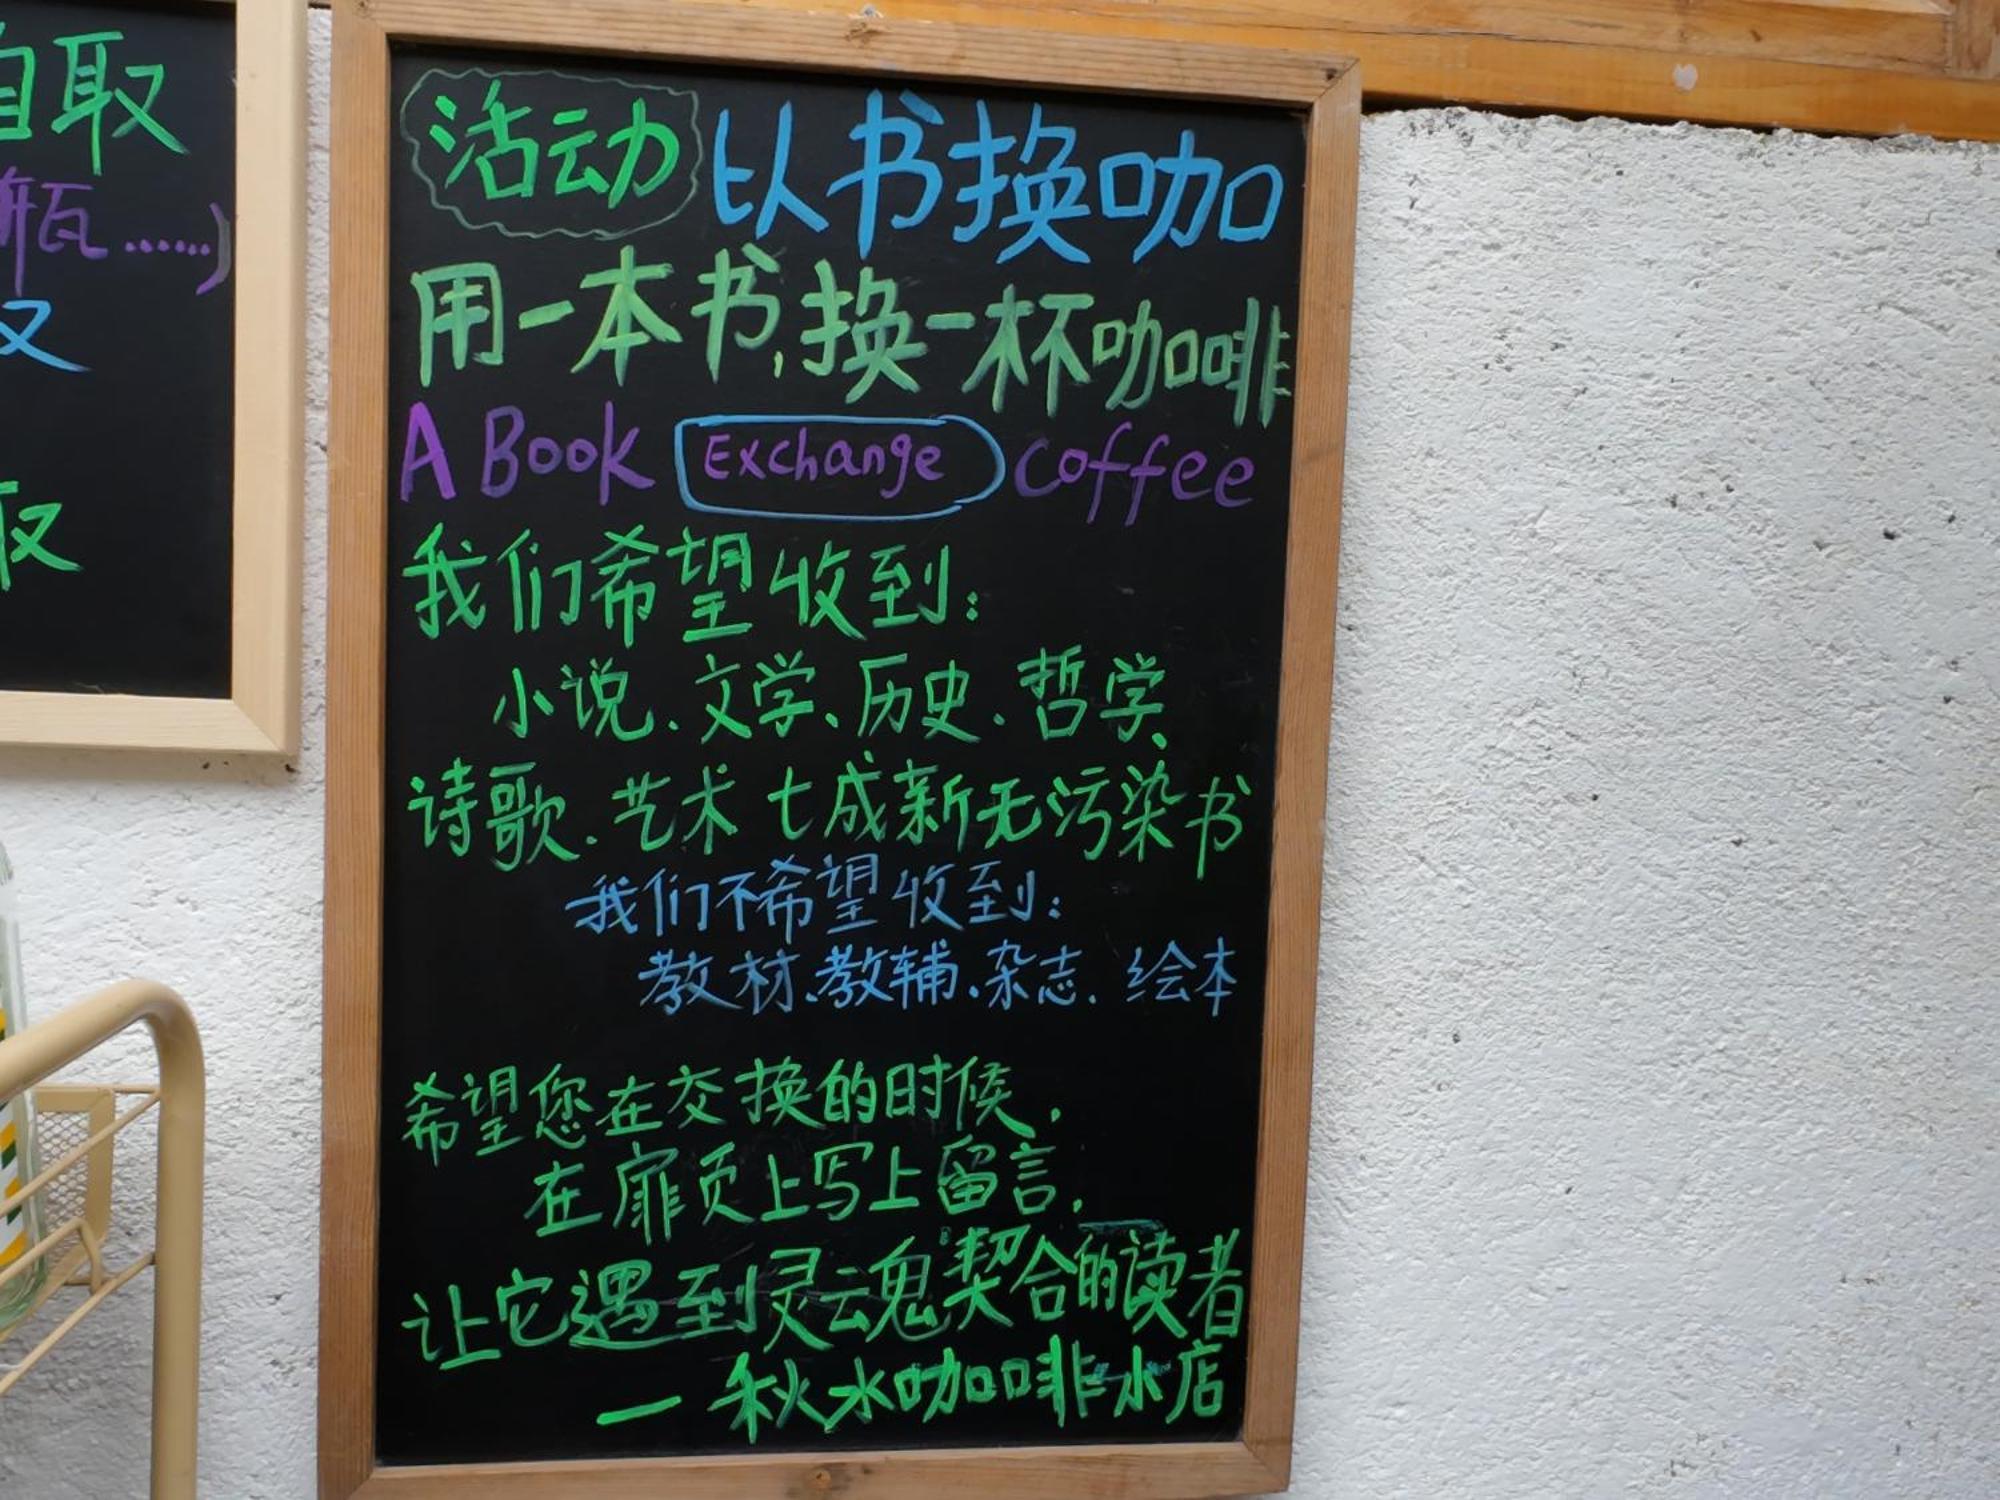 自取
瓦……)
取
活动 以书换咖
用一本书,换一杯咖啡
A Book Exchange Coffee
我们希望收到:
小说、文学、历史、哲学、
诗歌、艺术 七成新无污染书
我们不希望收到:
教材、教辅、杂志、绘本
希望您在交换的时候,
在扉页上写上留言,
让它遇到灵魂契合的读者
一秋水咖啡小店